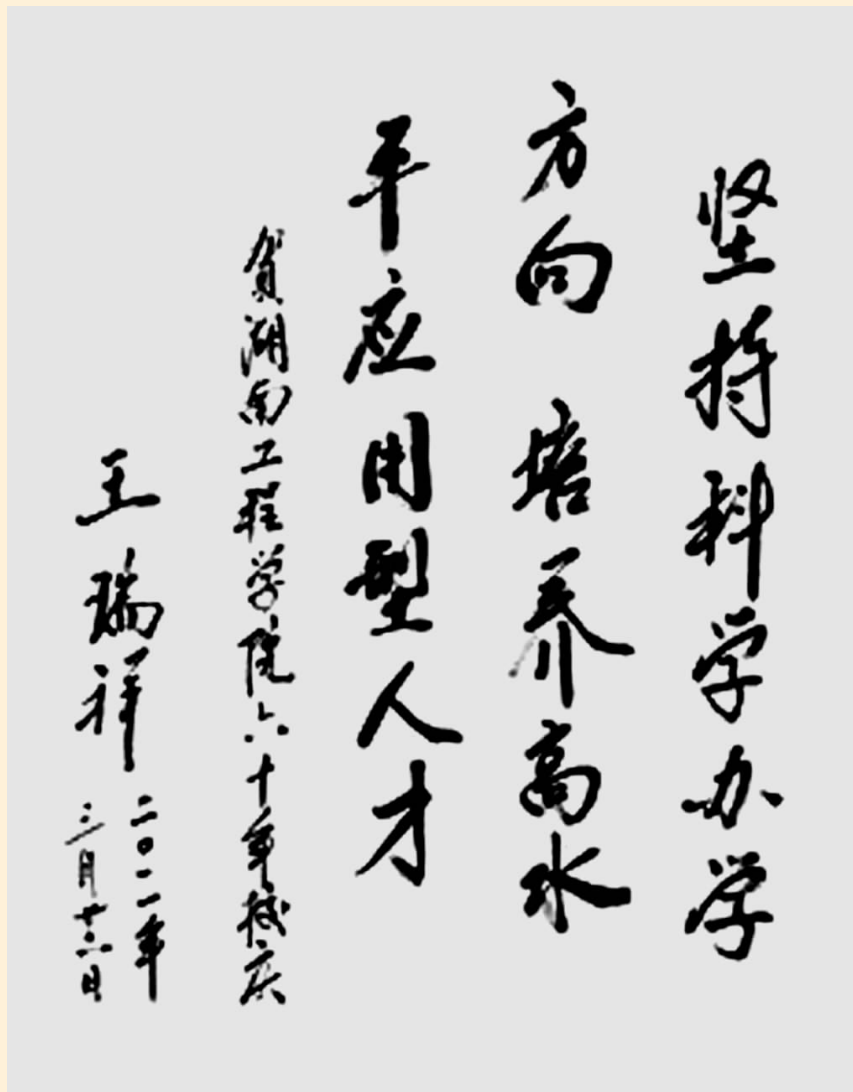 坚持科学办学
方向 培养高水
平应用型人才
贺湖南工程学院六十年校庆
王瑞祥
二〇一一年
三月廿六日